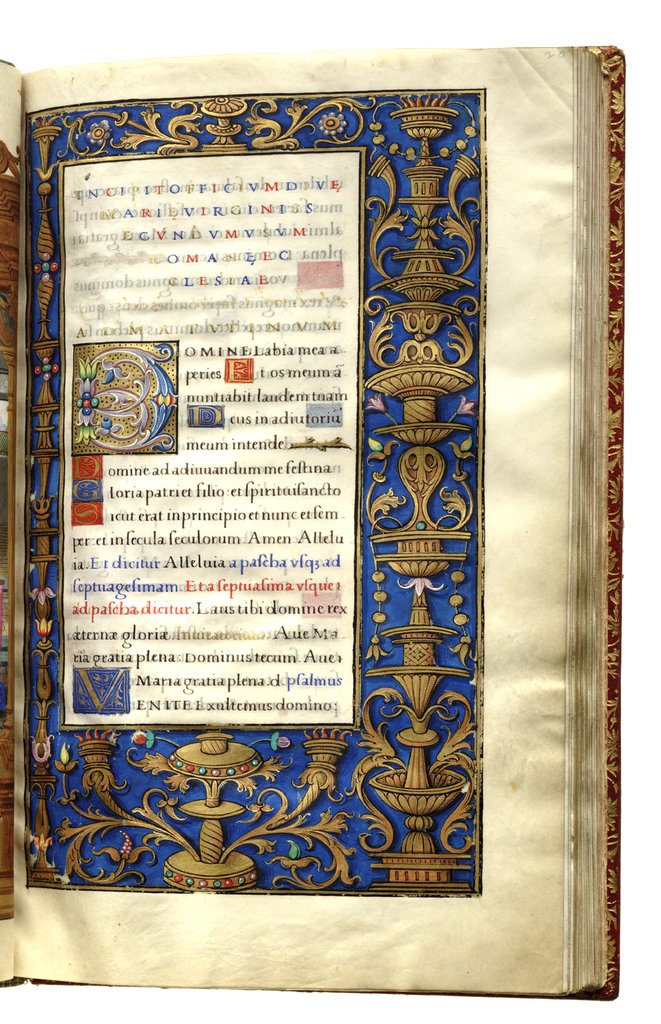 INCIPIT OFFICIVM DIVĘ
MARIĘ VIRGINIS
SECVNDVM VSVM
ROMANĘ EC
CLESIAE
AD MATVTINVM
DOMINE Labia mea a
peries Et os meum ā
nuntiabit laudem tuam
Deus in adiutoriū
meum intende
Domine ad adiuuandum me festina
Gloria patri et filio: et spiritui sancto
Sicut erat in principio et nunc et sem
per: et in secula seculorum. Amen. Allelu
ia. Et dicitur Alleluia a pascha vsqȝ ad
septuagesimam. Et a septuasima vsque:
ad pascha dicitur. Laus tibi domine rex
æternæ gloriæ. Inuitatorium. Aue Ma
ria gratia plena: Dominus tecum. Aue:
Maria gratia plena. d. psalmus
VENITE Exultemus domino: